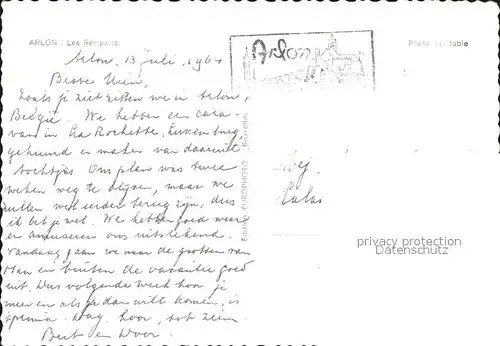 ARLON : Les Remparts.
Photo véritable
Arlon, 13 juli, 1964
Arlon
Beste Wim,
Zoals je ziet zitten we in Arlon,
België. We hebben een cara-
van in La Rochette, Luxemburg,
gehuurd en maken van daaruit
tochtjes. Ons plan was twee
weken weg te blijven, maar we
zullen wel eerder terug zijn, dus
ik bel je wel. We hebben goed weer
en amuseren ons uitstekend.
Vandaag gaan we naar de grotten van
Han en buiten de vacantie goed
uit. Dus volgende week hoor je
meer en als je dan wilt komen, is
prima. Dag hoor, tot ziens
Bert en
Editions EUROPHOTO Bruxelles
privacy protection
Datenschutz